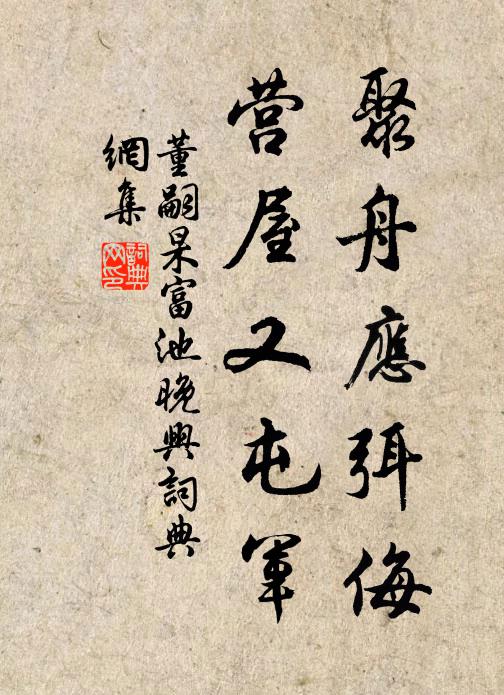 聚舟應弭侮
営屋又屯軍
董嗣杲富池晚興詞典
網集
詞典
网印